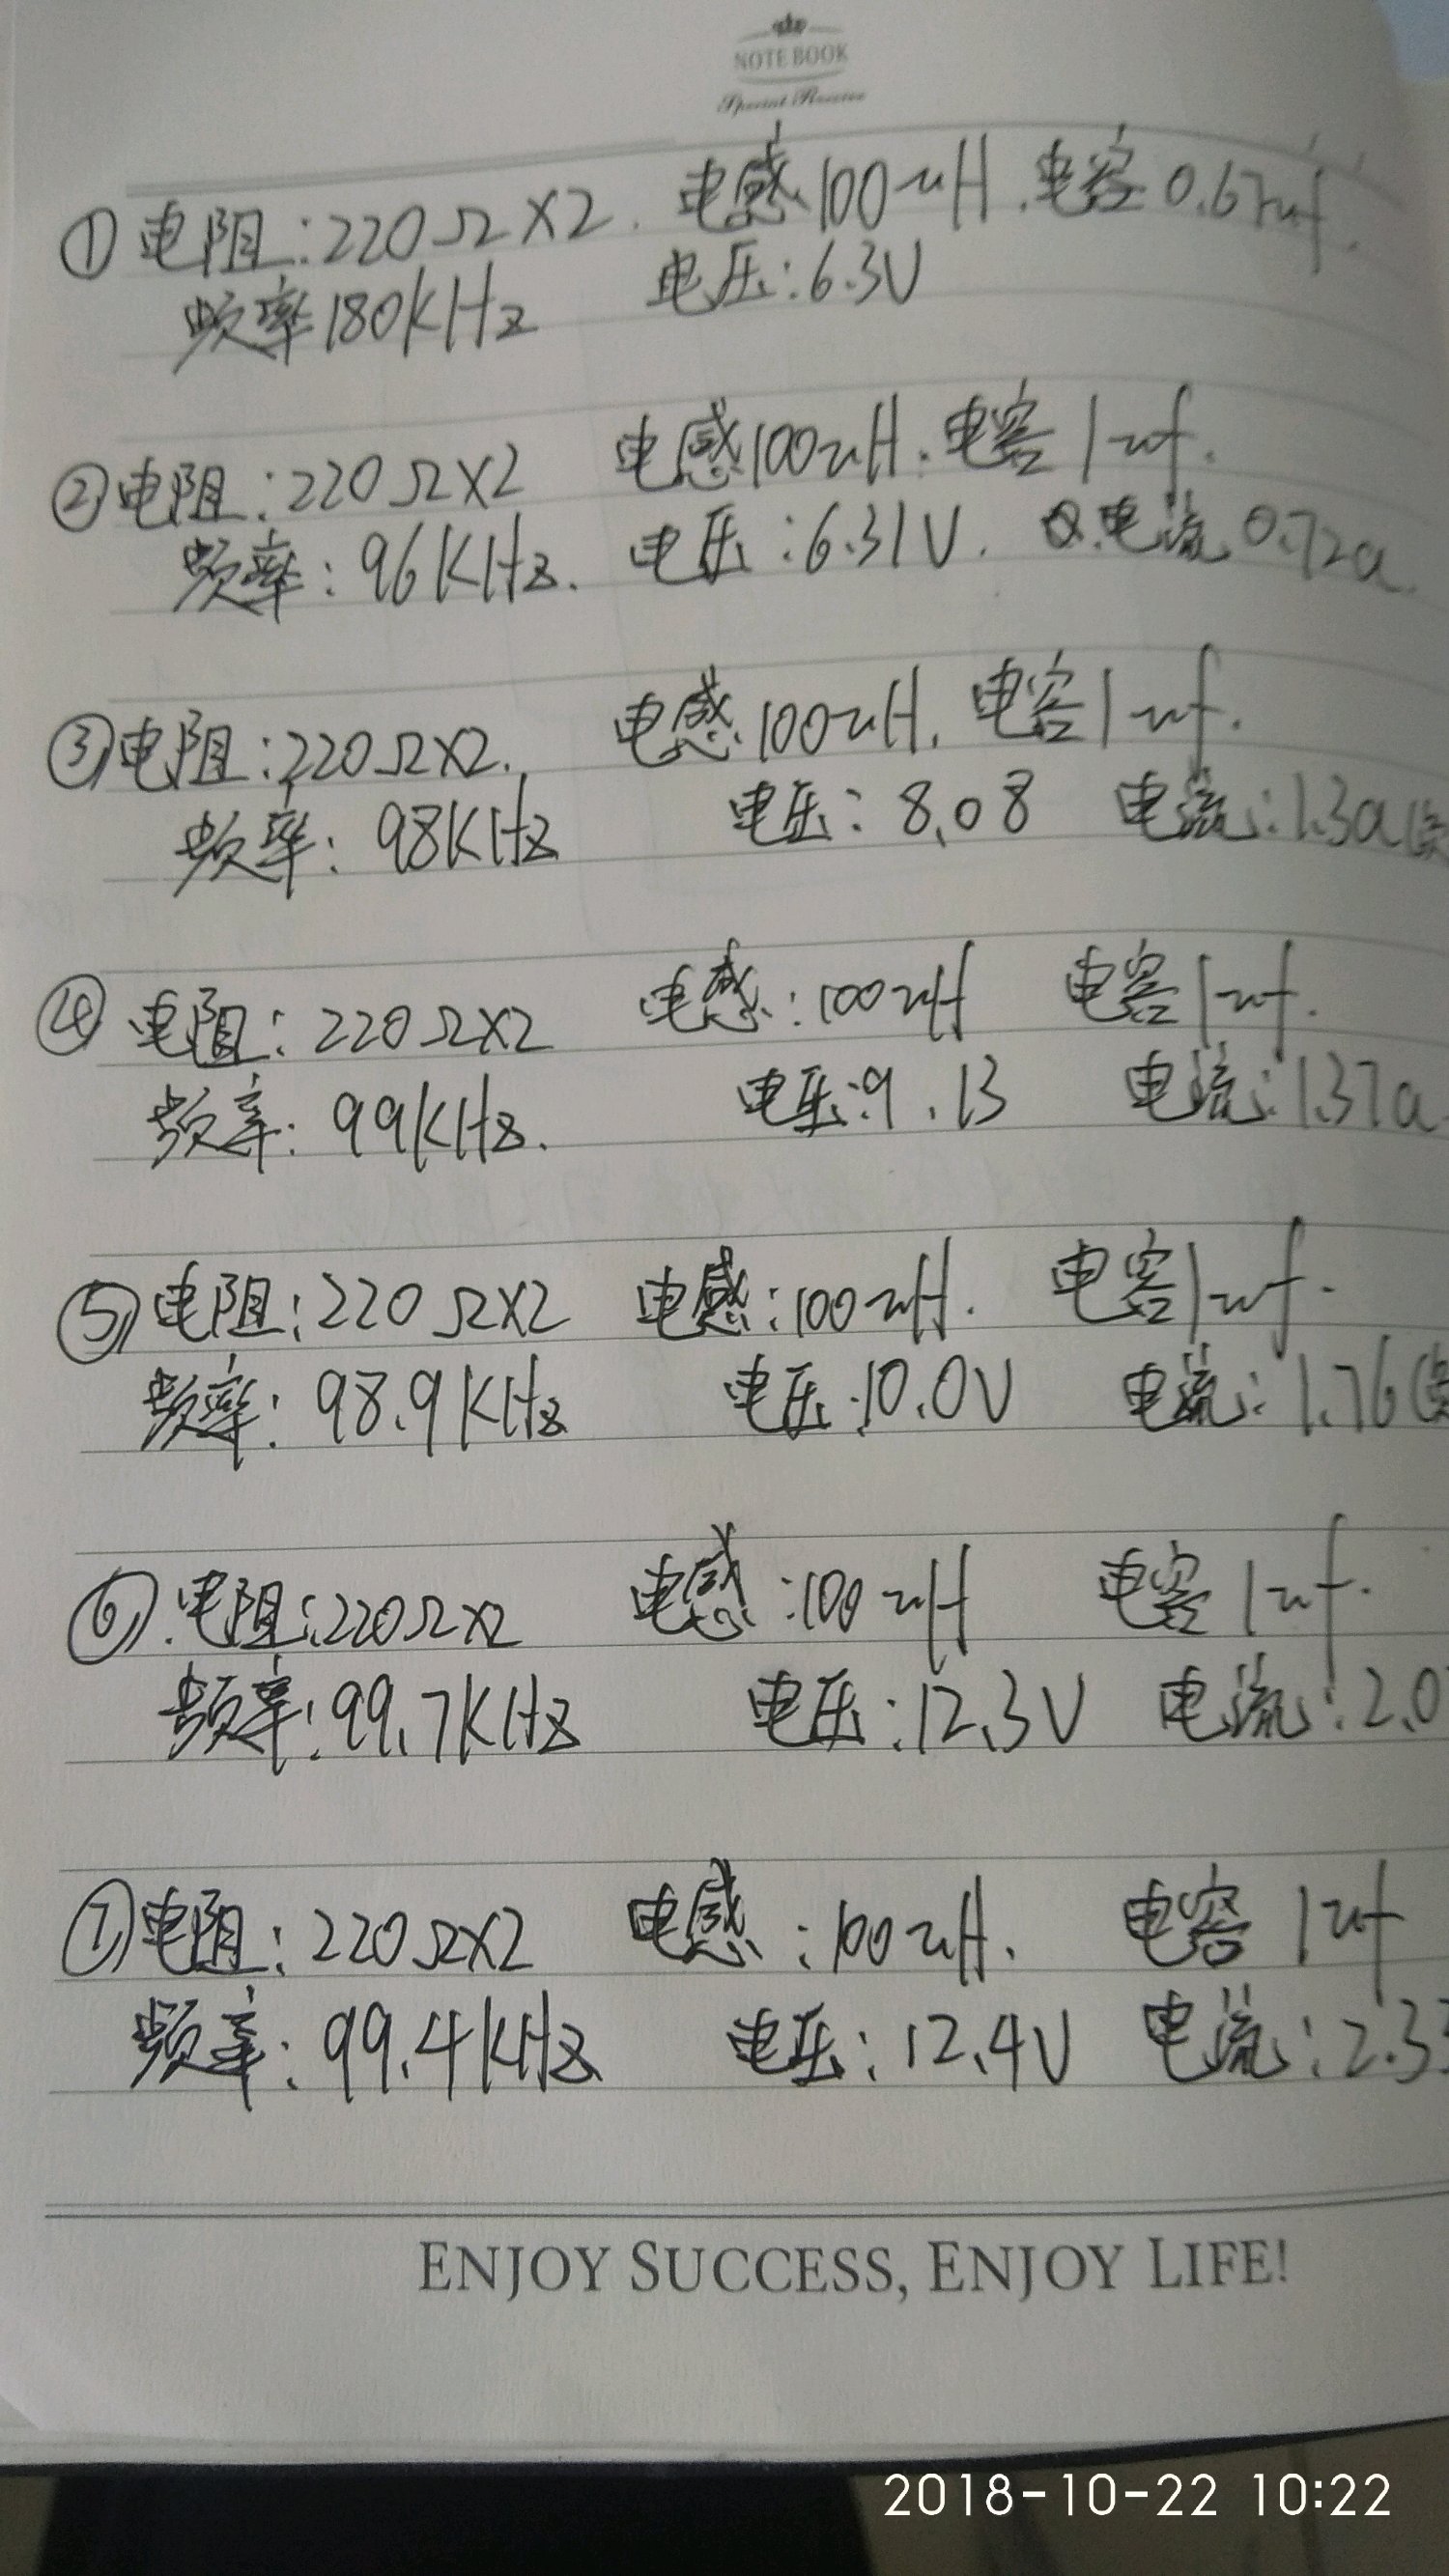 NOTE BOOK
Special Reserve
① 电阻:220Ω×2. 电感100uH.电容0.67uf.
频率180KHz 电压:6.3V
②电阻:220Ω×2 电感100uH.电容1uf.
频率:96KHz. 电压:6.31V. 电流0.72a.
③电阻:220Ω×2. 电感100uH. 电容1uf.
频率:98KHz 电压:8.08 电流:1.3a
④ 电阻:220Ω×2 电感:100uH 电容1uf.
频率:99KHz. 电压:9.13 电流:1.37a
⑤电阻:220Ω×2 电感:100uH. 电容1uf.
频率:98.9KHz 电压:10.0V 电流:1.76
⑥.电阻:220Ω×2 电感:100uH 电容1uf.
频率:99.7KHz 电压:12.3V 电流:2.0
⑦电阻:220Ω×2 电感:100uH. 电容1uf
频率:99.4KHz 电压:12.4V 电流:2.33
ENJOY SUCCESS, ENJOY LIFE!
2018-10-22 10:22